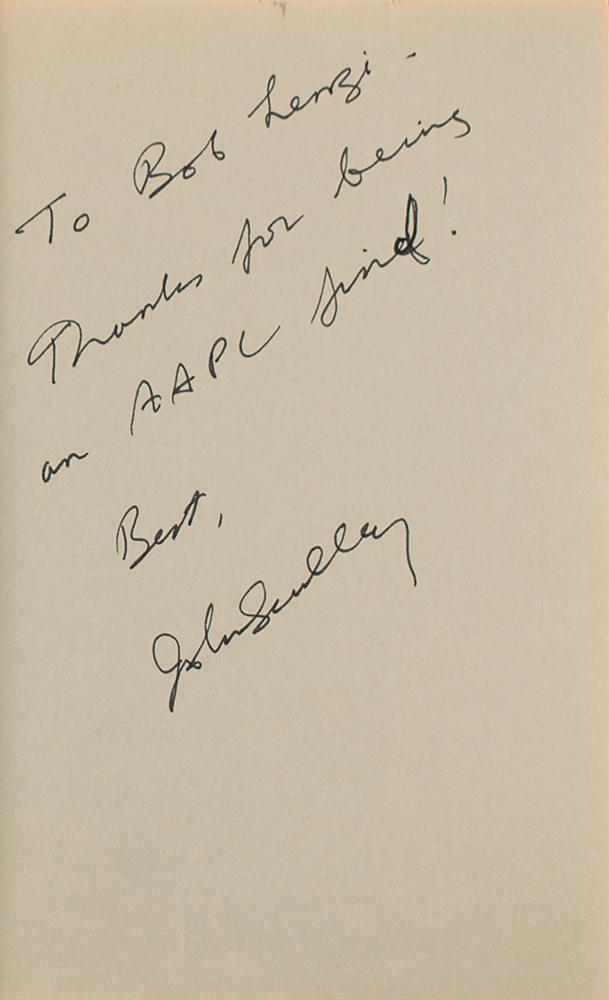 To Bob Lenzi -
Thanks for being
an AAPL
Best,
John Sculley